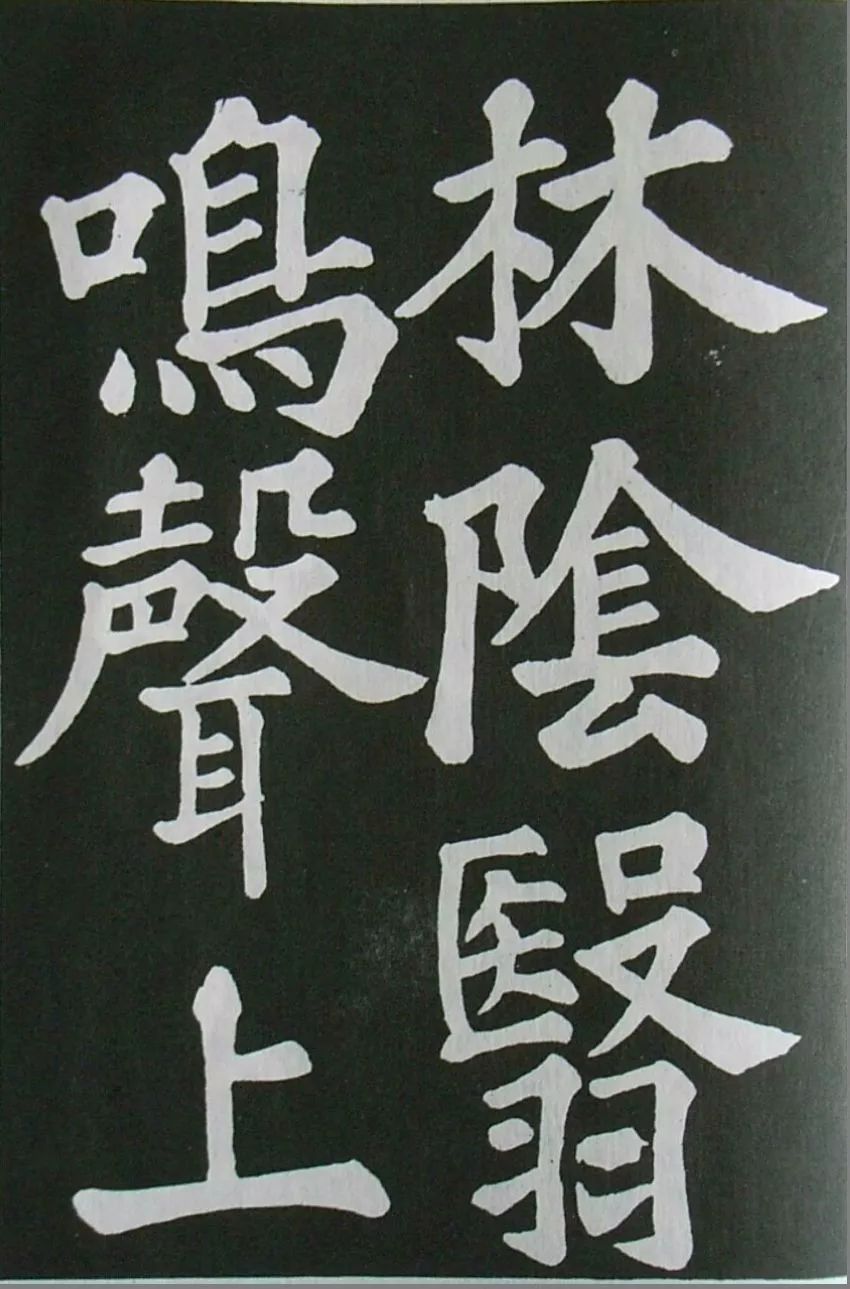 林陰翳
鳴聲上